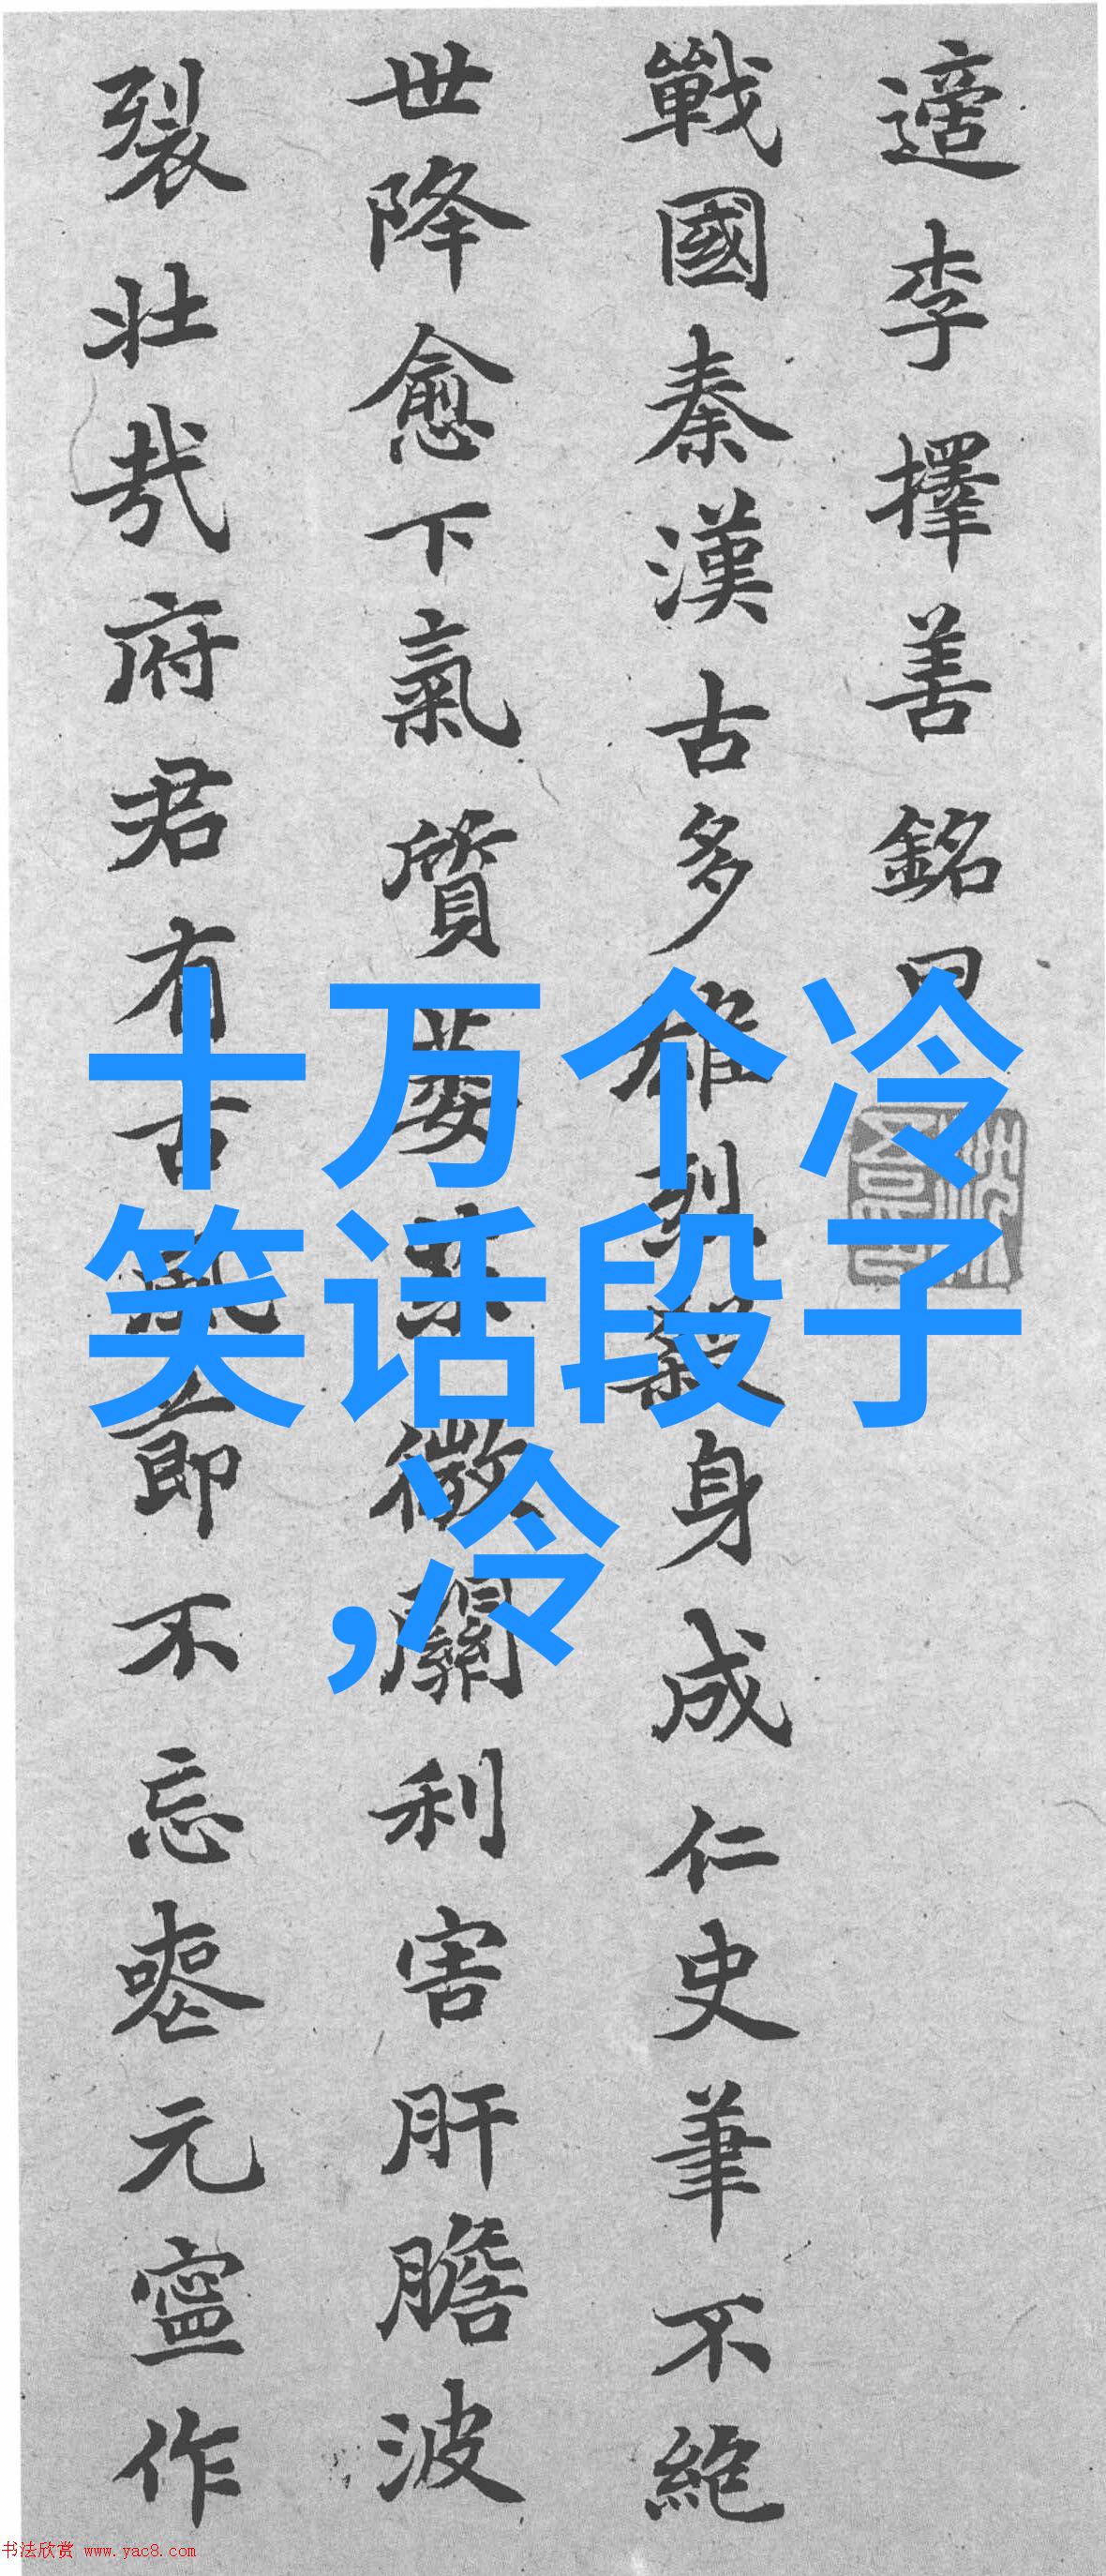 適李擇善銘曰
戰國秦漢古多雄烈殺身成仁史筆不絶
世降愈下氣質萎微關利害肝膽波
裂壯哉府君有古風節不忘喪元寧作
十万个冷
笑话段子
,冷
书法欣赏 www.yac8.com